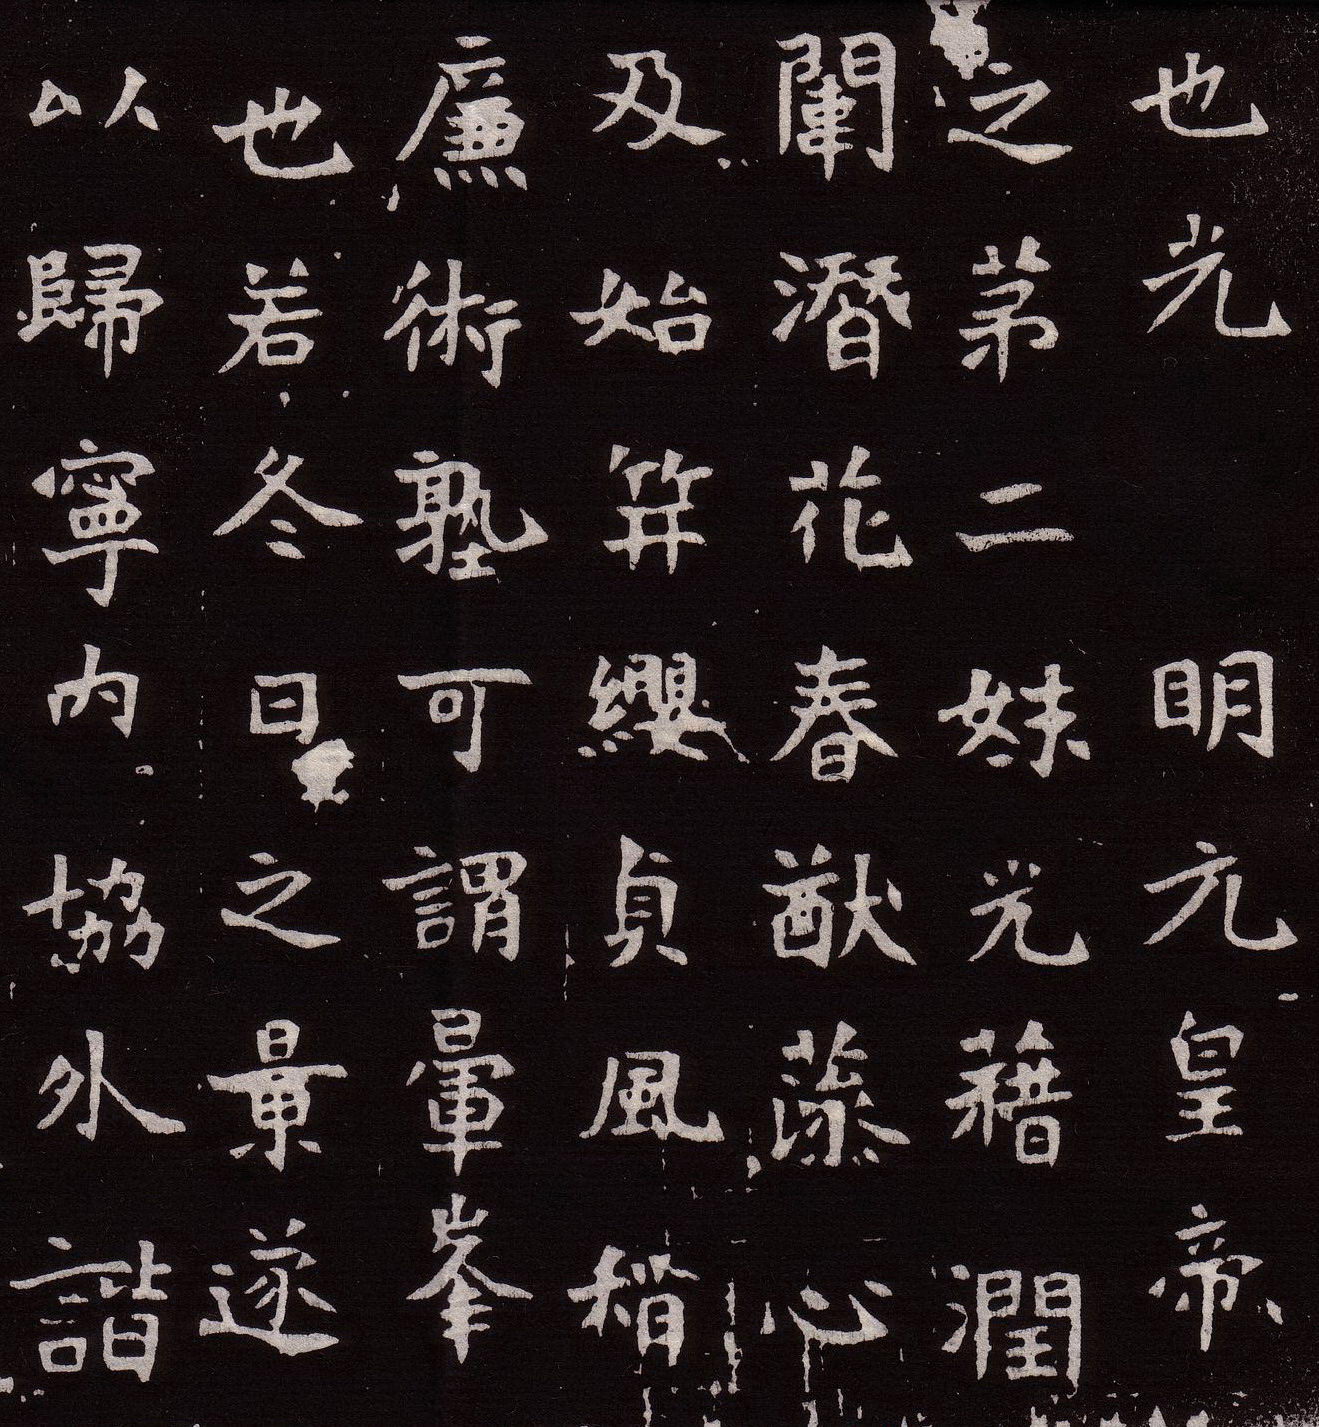 也光 明元皇帝
之苐二妹光藉潤
闈潛花春猷蒤心
及始筓纓貞風
廉術塾可謂暈峯
也若冬日之景遂
以歸寧内協外諧